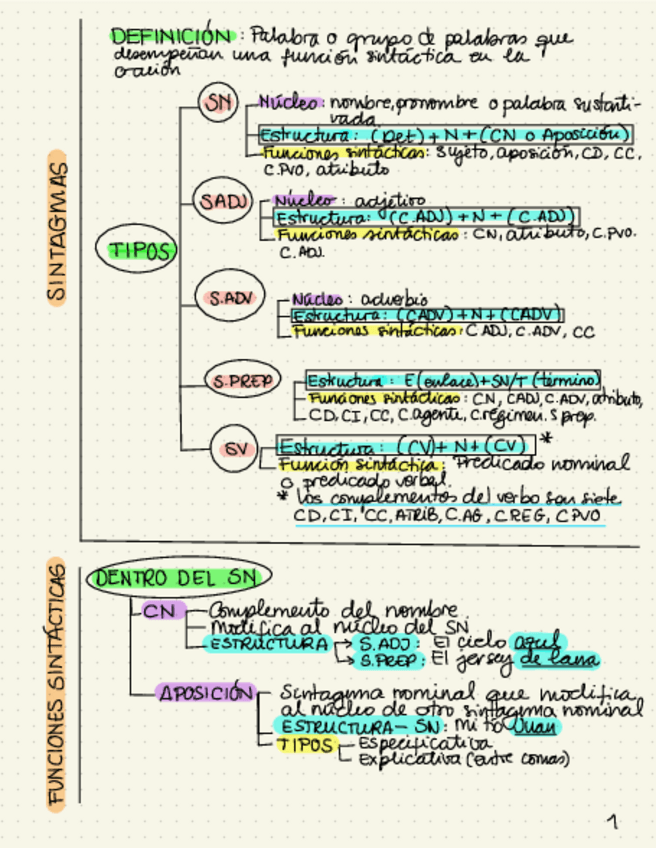 DEFINICIÓN: Palabra o grupo de palabras que
desempeñan una función sintáctica en la
oración
SINTAGMAS
TIPOS
SN
Núcleo: nombre, pronombre o palabra sustanti-
vada
Estructura: (Det) + N + (CN o Aposición)
Funciones sintácticas: Sujeto, aposición, CD, CC,
C.PVO, atributo
SADJ
Núcleo: adjetivo
Estructura: (C.ADJ) + N + (C.ADJ)
Funciones sintácticas: CN, atributo, C.PVO.
C.ADJ.
S.ADV
Núcleo: adverbio
Estructura: (CADV) + N + (CADV)
Funciones sintácticas: CADJ, C.ADV, CC
S.PREP
Estructura: E (enlace) + SN/T (término)
Funciones sintácticas: CN, CADJ, C.ADV, atributo,
CD, CI, CC, C.agente, C.régimen. S prep.
SV
Estructura: (CV) + N + (CV) *
Función sintáctica: Predicado nominal
o predicado verbal.
* Los complementos del verbo son siete
CD, CI, CC, ATRIB, C.AG, C.REG, C.PVO
FUNCIONES SINTÁCTICAS
DENTRO DEL SN
CN
Complemento del nombre
Modifica al núcleo del SN
ESTRUCTURA → S.ADJ: El cielo azul
→ S.PREP: El jersey de lana
APOSICIÓN
Sintagma nominal que modifica
al núcleo de otro sintagma nominal
ESTRUCTURA - SN: Mi tío Juan
TIPOS
Especificativa
Explicativa (entre comas)
1